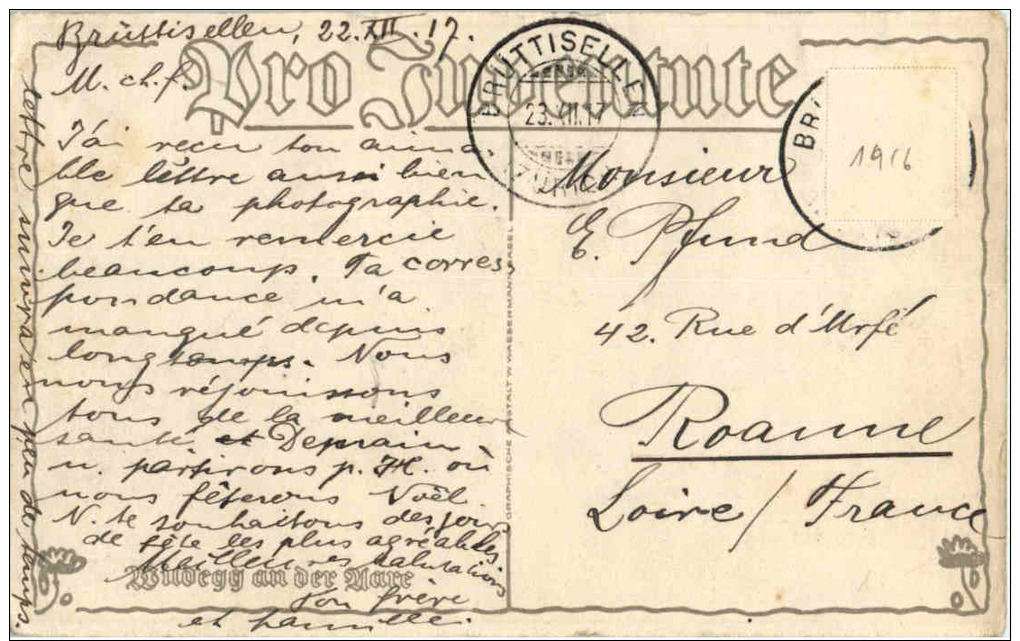 Brüttisellen, 22.XII.17.
Pro Juventute
M. ch. f.
J'ai reçu ton aima-
ble lettre aussi bien
que ta photographie.
Je t'en remercie
beaucoup. Ta corres-
pondance m'a
manqué depuis
longtemps. Nous
nous réjouissons
tous de la meilleure
santé et Demain
n. partirons p. où
nous fêterons Noël
N. te souhaitons des joies
de fête les plus agréables
Meilleures salutations
Ton frère
et famille.
lettre suivra en peu de temps.
Wildegg an der Aare
GRAPHISCHE ANSTALT W. WASSERMANN BASEL
BRÜTTISELLEN
23.XII.17
BRÜ
1916
Monsieur
E. Pfund
42. Rue d'Urfé
Roanne
Loire / France